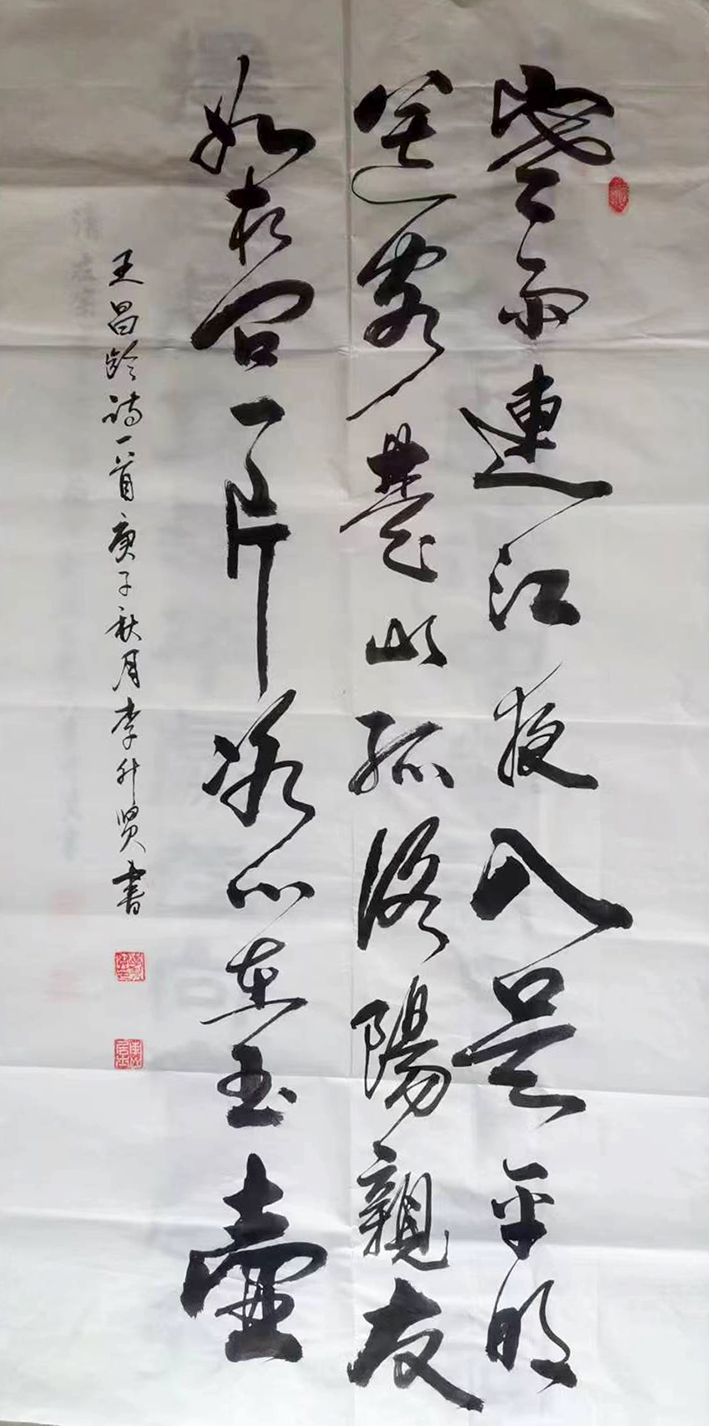 寒雨連江夜入吴平明
送客楚山孤洛陽親友
如相问一片冰心在玉壶
王昌龄诗一首庚子秋月李升贤书